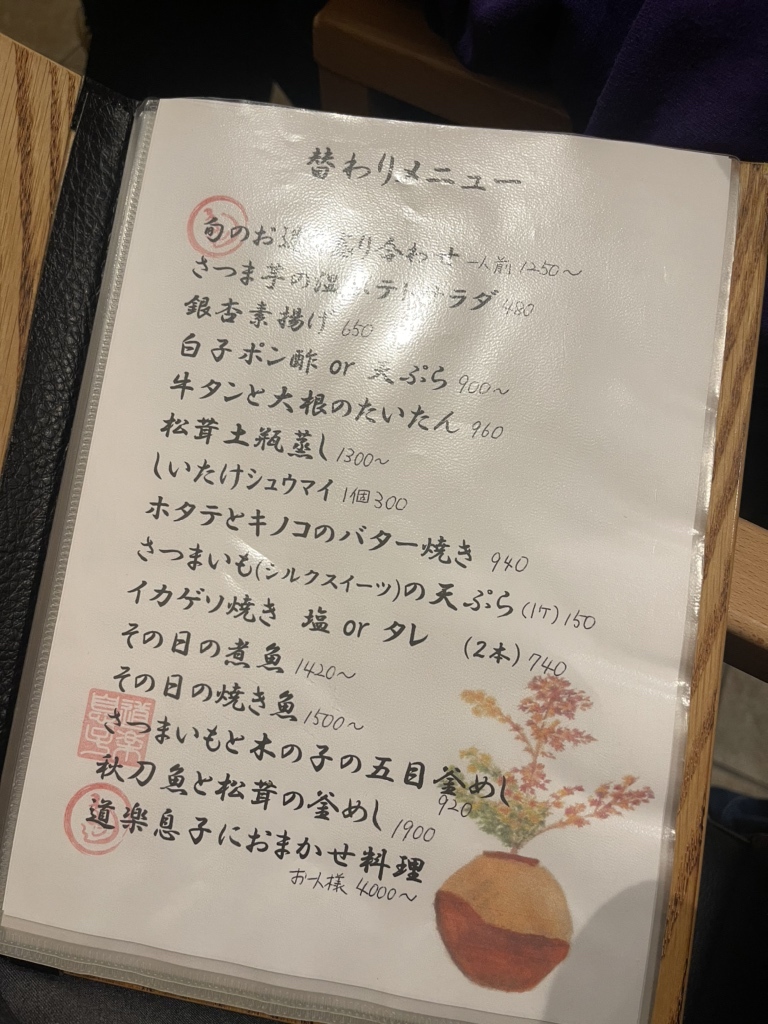 替わりメニュー
旬のお 盛り合わせ 一人前 1250〜
さつま芋の温 ポテトサラダ 480
銀杏素揚げ 650
白子ポン酢 or 天ぷら 900〜
牛タンと大根のたいたん 960
松茸土瓶蒸し 1300〜
しいたけシュウマイ 1個300
ホタテとキノコのバター焼き 940
さつまいも(シルクスイーツ)の天ぷら (1ケ) 150
イカゲソ焼き 塩 or タレ (2本) 740
その日の煮魚 1420〜
その日の焼き魚 1500〜
さつまいもと木の子の五目釜めし 920
秋刀魚と松茸の釜めし 1900
道楽息子におまかせ料理
お一人様 4000〜
道楽息子